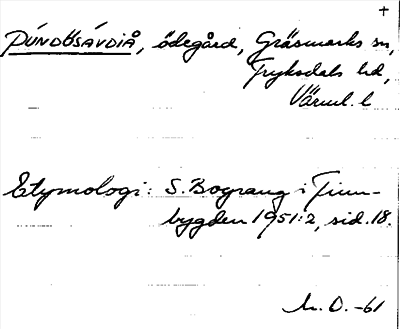 +
PÚNDÖSÁVDIÅ, ödegård, Gräsmarks sn,
Fryksdals hd,
Värml. l
Etymologi: S. Bograng i Finn-
bygden 1951:2, sid. 18.
M. O. -61